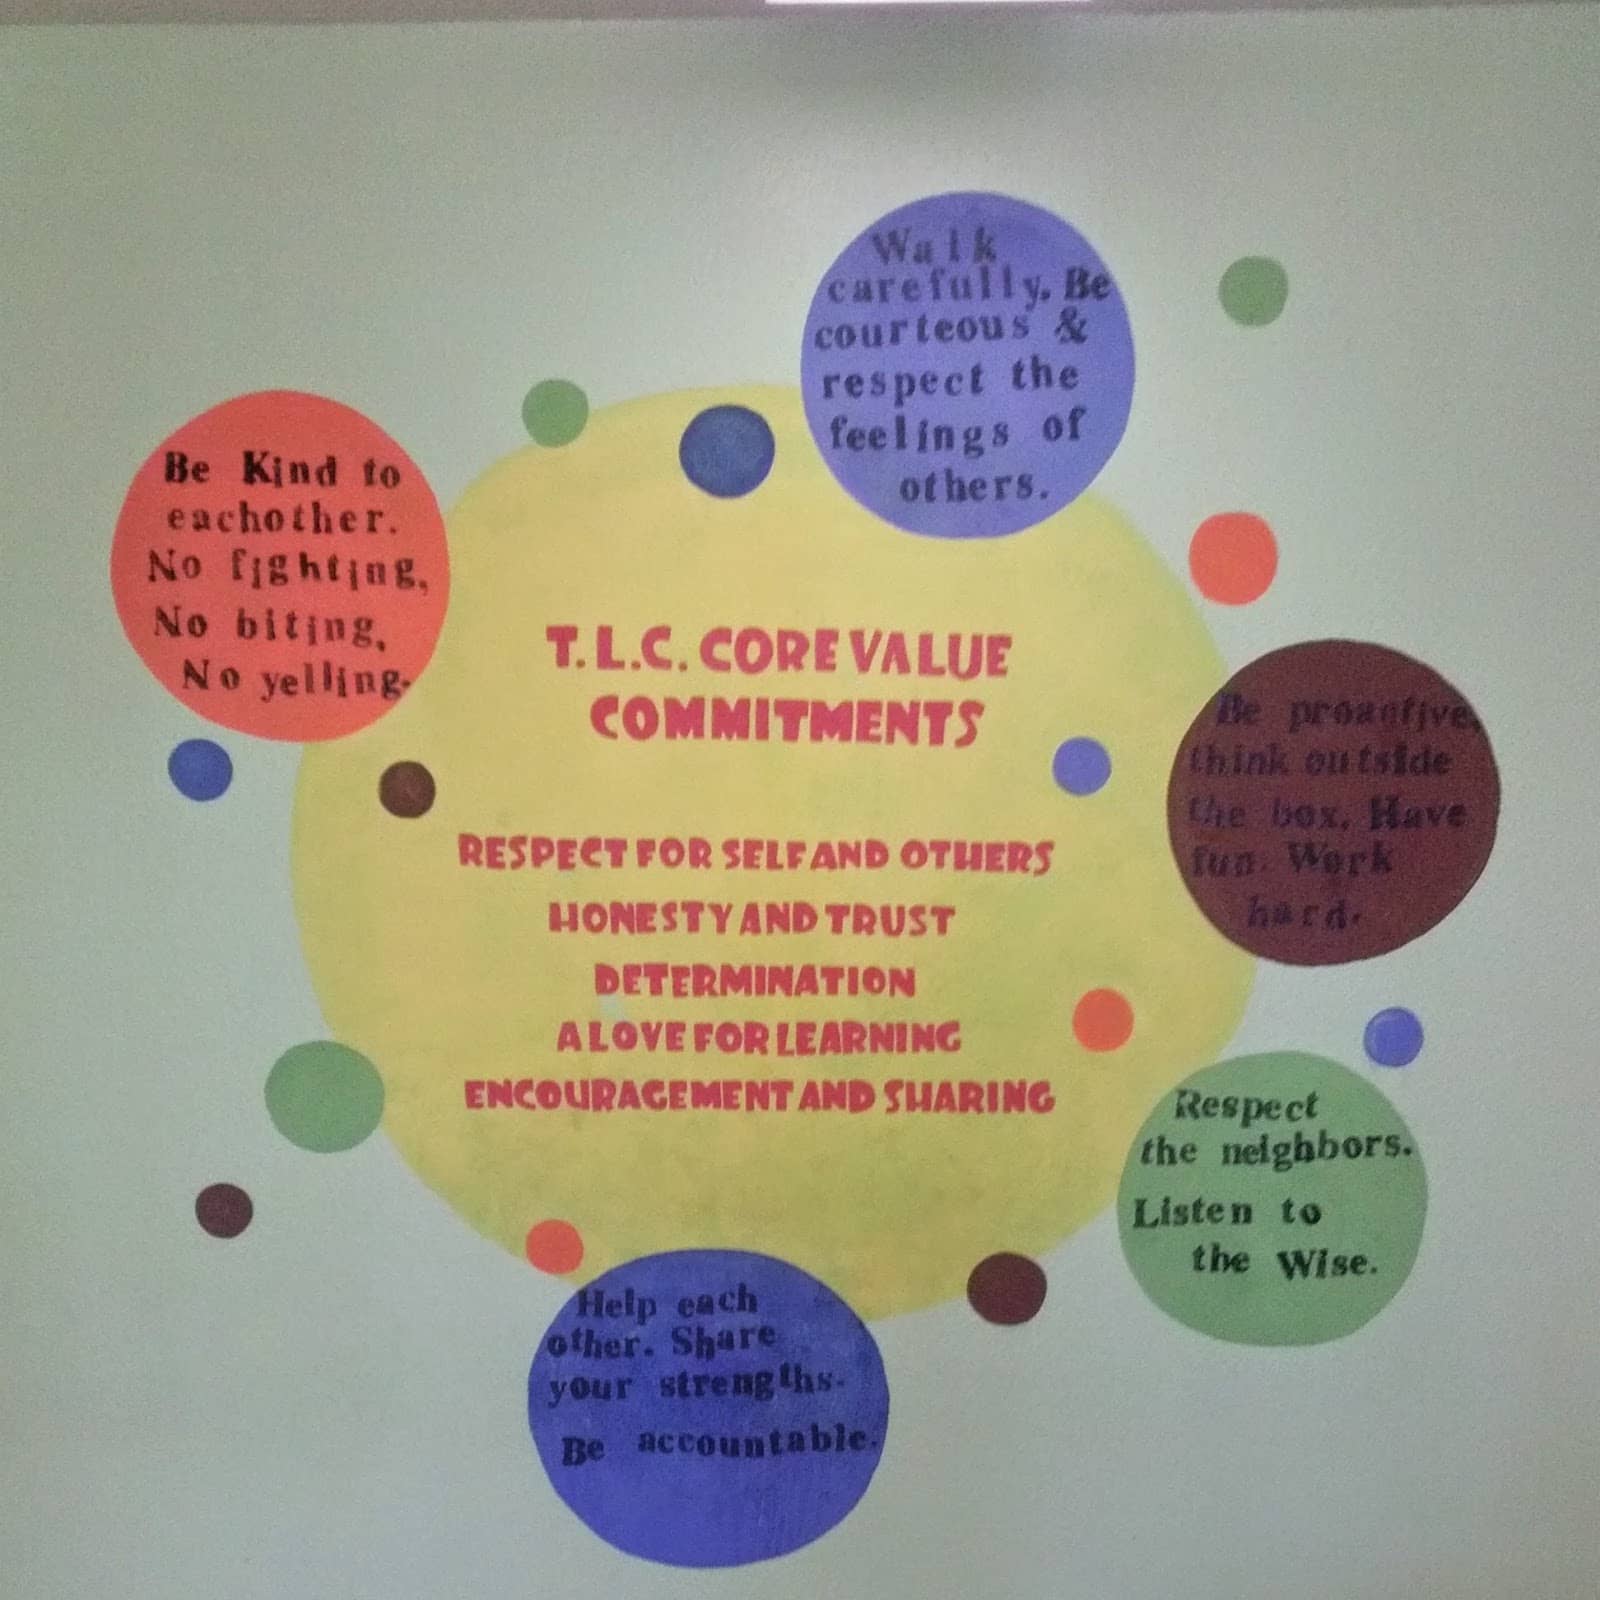 Walk
carefully. Be
courteous &
respect the
feelings of
others.
Be Kind to
eachother.
No fighting,
No biting,
No yelling.
T.L.C. CORE VALUE
COMMITMENTS
RESPECT FOR SELF AND OTHERS
HONESTY AND TRUST
DETERMINATION
A LOVE FOR LEARNING
ENCOURAGEMENT AND SHARING
Be proactive,
think outside
the box. Have
fun. Work
hard.
Respect
the neighbors.
Listen to
the Wise.
Help each
other. Share
your strengths.
Be accountable.